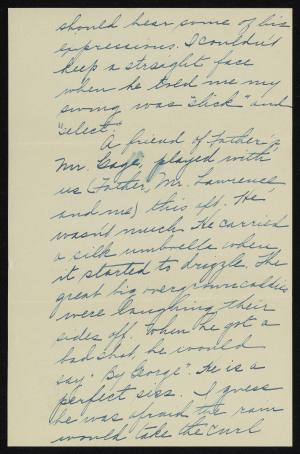 should hear some of his
expressions. I couldn't
keep a straight face
when he told me my
swing was "slick" and
"select".
A friend of Father's,
Mr. Gage, played with
us (Father, Mr. Lawrence
and me) this aft. He
wasn't much. He carried
a silk umbrella when
it started to drizzle. The
great big overgrown caddies
were laughing their
sides off. When he got a
bad shot, he would
say "By George". He is a
perfect siss. I guess
he was afraid the rain
would take the curl